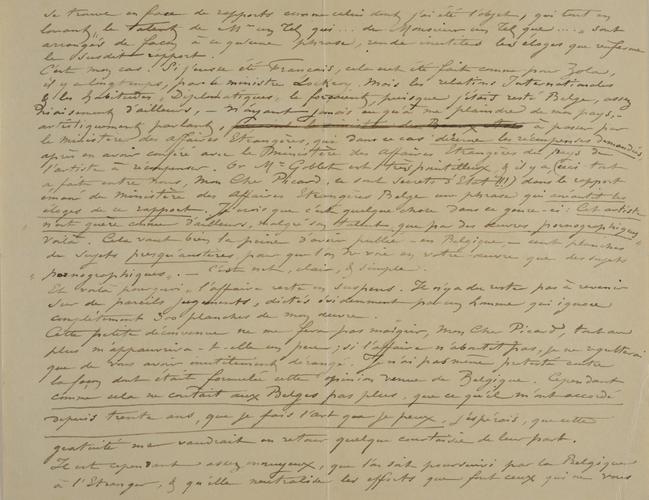 se trouve en face de rapports comme celui dont j'ai été l'objet, qui tout en
louant "le talent de Mr un tel qui ... de Monsieur un tel que ...." sont
arrangés de façon à ce qu'une phrase, rende inutiles les éloges que renferme
le susdit rapport.
C'est mon cas. Si j'eusse été Français, cela eut été fait comme pour Zola,
il y a longtemps, par le ministre Lockroy. Mais les relations Internationales
& les habitudes Diplomatiques, le forcaient, puisque j'étais resté Belge, assez
niaisement d'ailleurs, – n'ayant jamais eu qu'à me plaindre de mon pays, –
artistiquement parlant, à passer par
le ministère des affaires Etrangères, qui dans ce cas décerne les récompenses demandées,
après en avoir conféré avec le Ministère des Affaires Etrangères du pays de
l'artiste à récompenser. Or Mr Goblet est très pointilleux & il y a (ceci tout
à fait entre nous, Mon Cher Picard, ce sont secrets d'Etat!!!) dans le rapport
émané du Ministère des Affaires Etrangères Belge une phrase qui anéantit les
éloges de ce rapport. Je crois que c'est quelque chose dans ce genre-ci: Cet artiste
n'est guère connu d'ailleurs, malgré son talent, que par des œuvres pornographiques
voilà. Cela vaut bien la peine d'avoir publié – en Belgique, – cent planches
de sujets presqu'austères pour que l'on ne voie en votre œuvre que des sujets
"pornographiques". – C'est net, clair, & simple.
Et voilà pourquoi "l'affaire reste en suspens. Il n'y a du reste pas à revenir
sur de pareils jugements, dictés évidemment par un homme qui ignore
complètement 300 planches de mon œuvre.
Cette petite déconvenue ne me fera pas maigrir, Mon Cher Picard, tout au
plus m'appauvrira-t-elle un peu; si l'affaire n'aboutit pas, je ne regretterai
que de vous avoir inutilement dérangé. Je n'ai pas même protesté contre
la façon dont était formulée cette opinion venue de Belgique. Cependant
comme cela ne coutait aux Belges pas plus, que ce qu'ils m'ont accordé
depuis trente ans, que je fais l'art que je peux, j'espérais, que cette
gratuité me vaudrait en retour quelque courtoisie de leur part.
Il est cependant assez ennuyeux, que l'on soit poursuivi par la Belgique
à l'Etranger, & qu'elle neutralise les efforts que font ceux qui ne vous